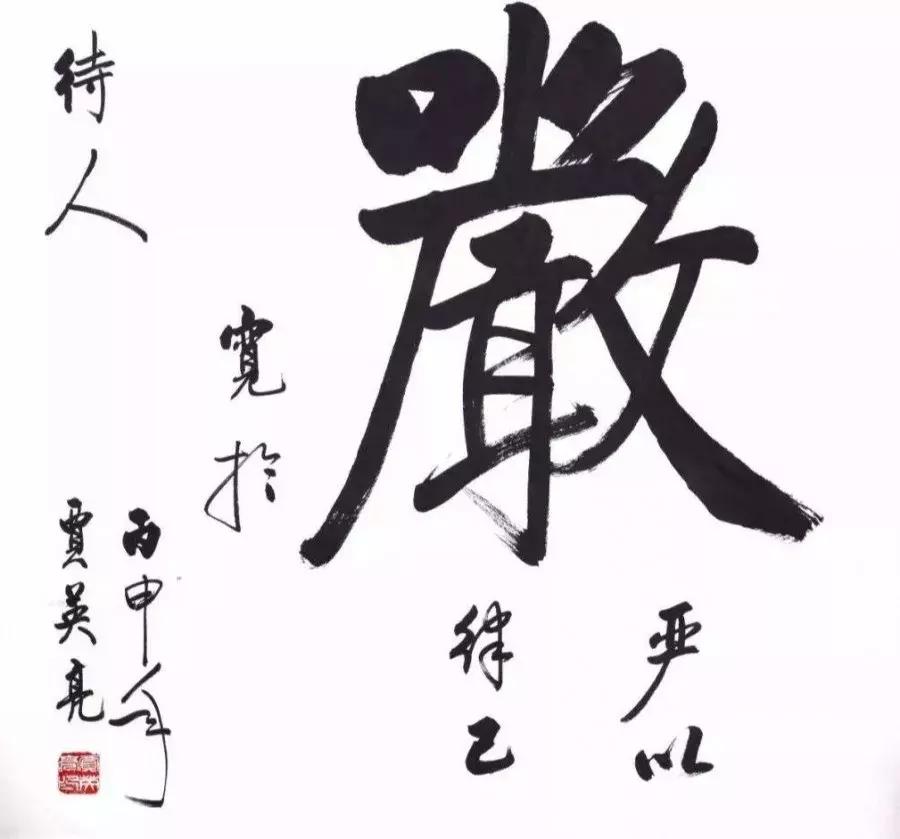 嚴
严以
律己
寬於
待人
丙申年
賈英亮